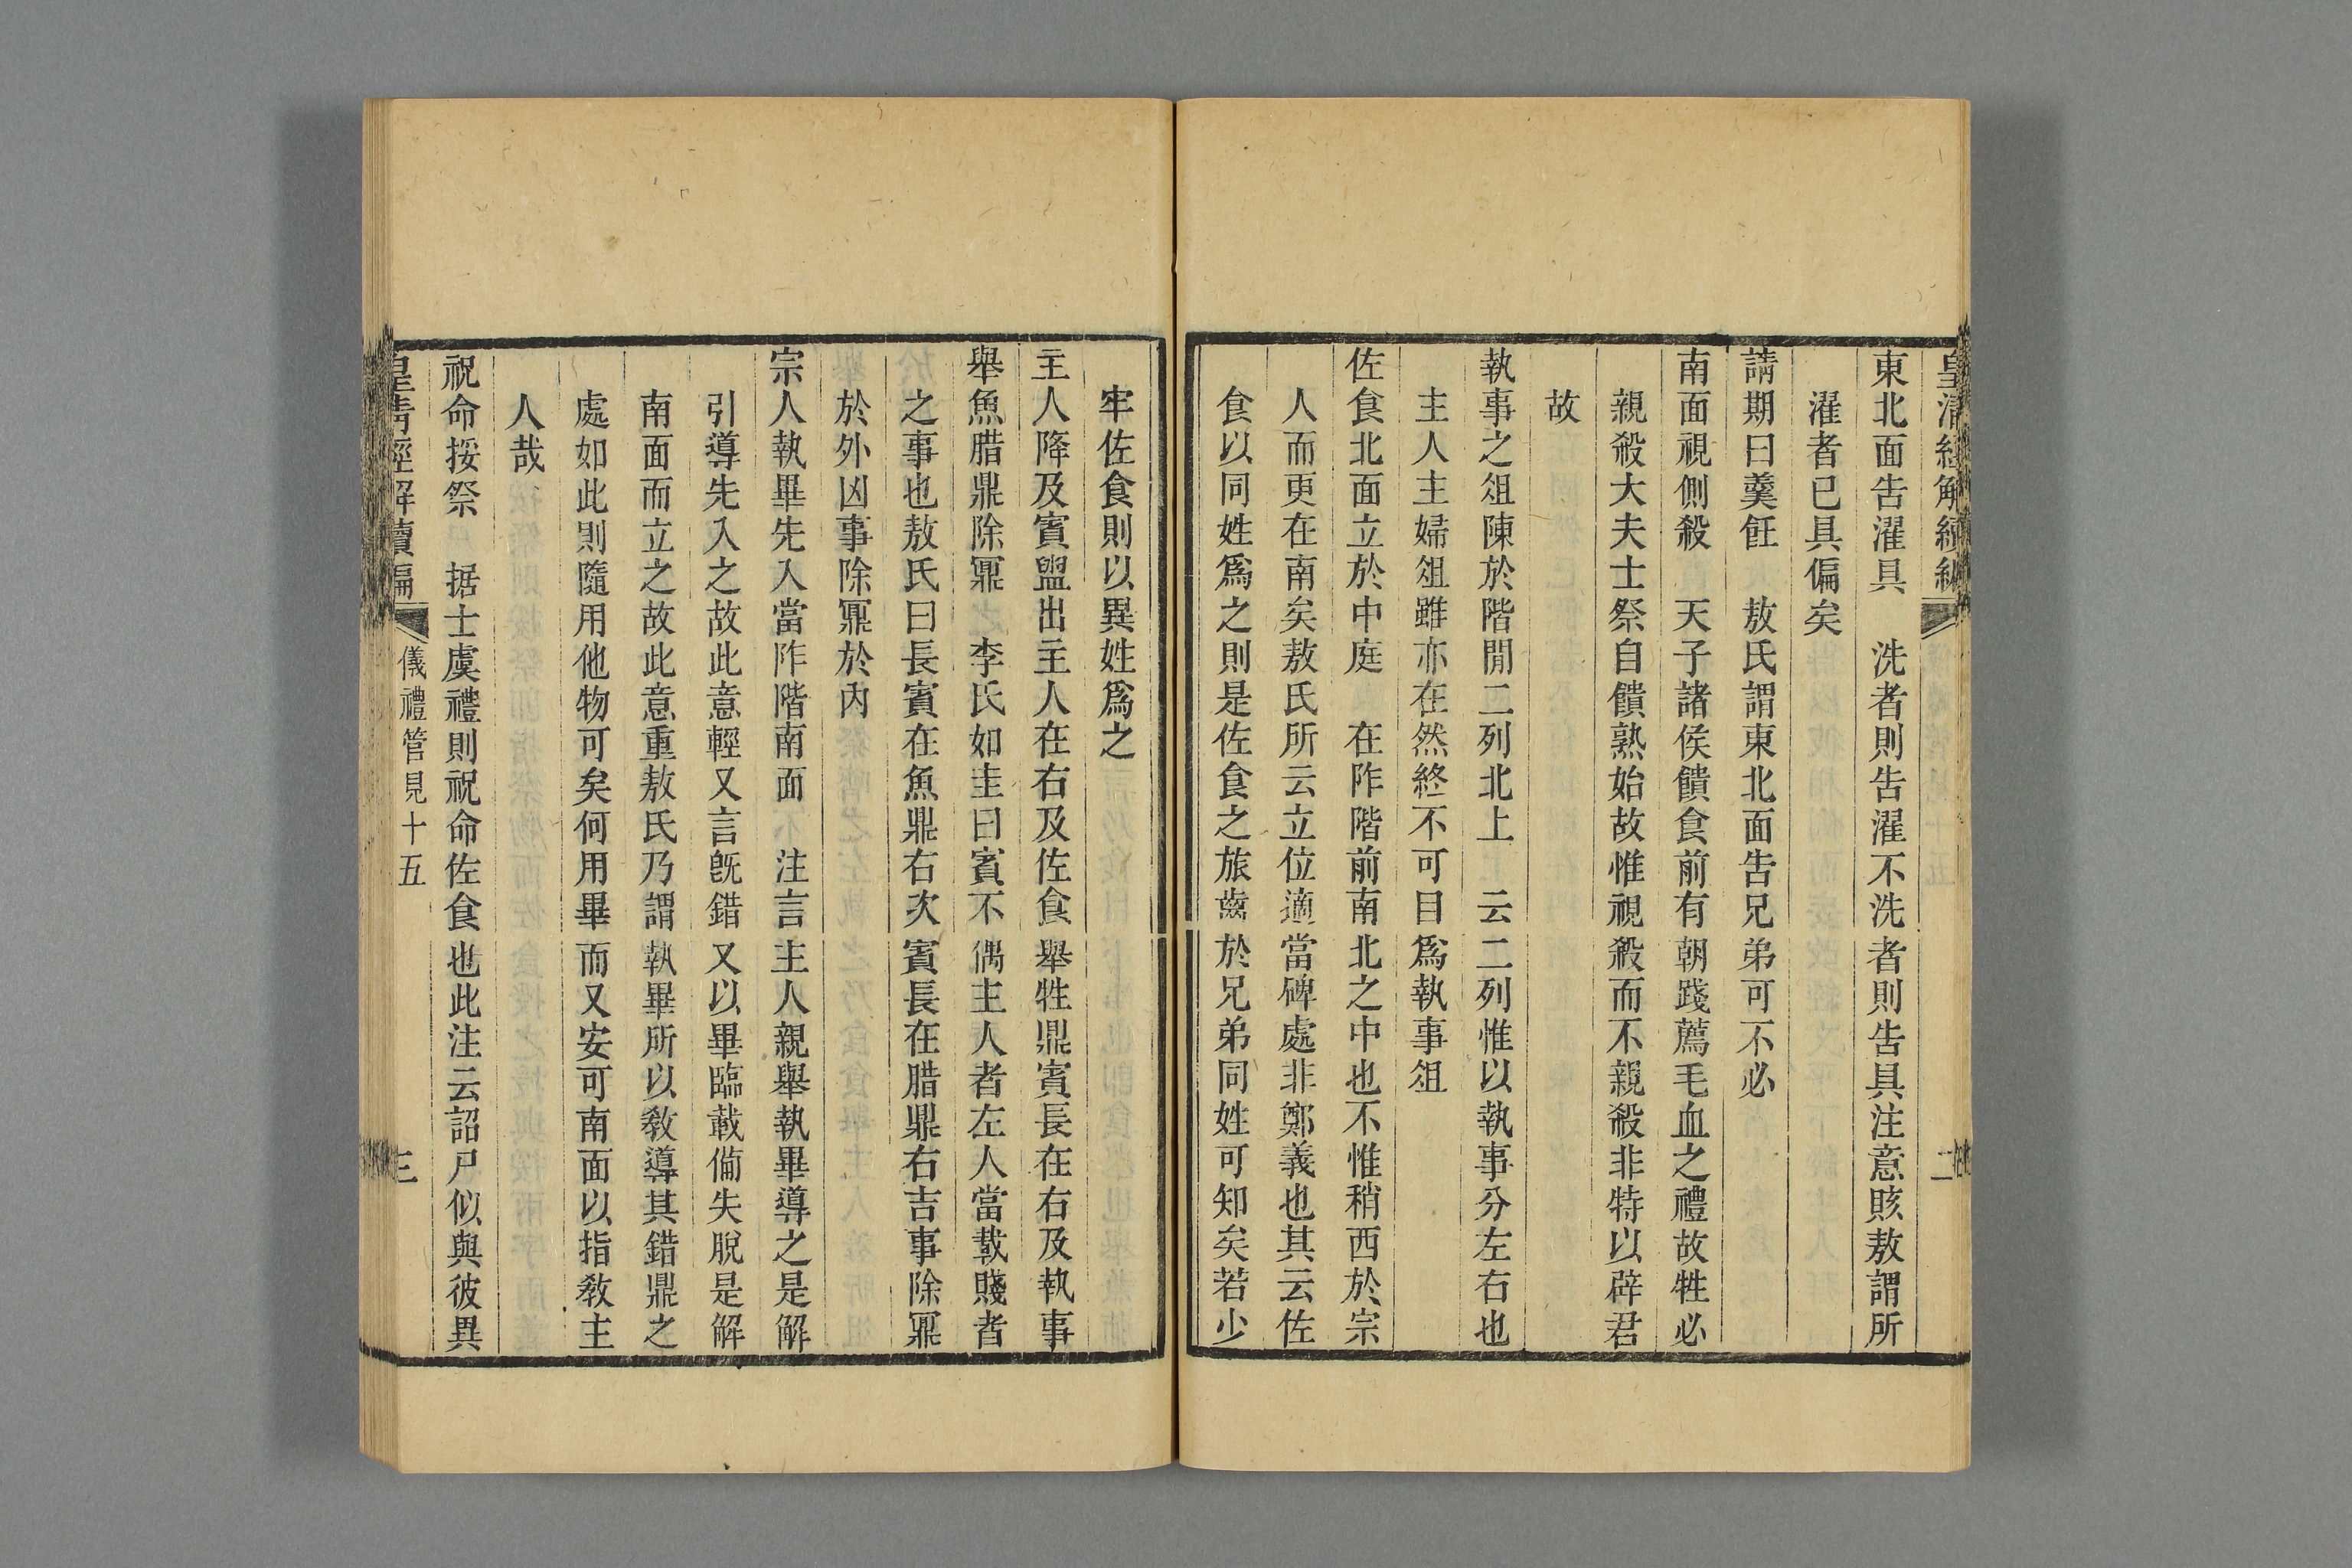 皇清經解續編
二
東北面告濯具　洗者則告濯不洗者則告具注意賅敖謂所
濯者已具偏矣
請期曰羹飪　敖氏謂東北面告兄弟可不必
南面視側殺　天子諸侯饋食前有朝踐薦毛血之禮故牲必
親殺大夫士祭自饋熟始故惟視殺而不親殺非特以辟君
故
執事之俎陳於階閒二列北上　云二列惟以執事分左右也
主人主婦俎雖亦在然終不可目爲執事俎
佐食北面立於中庭　在阼階前南北之中也不惟稍西於宗
人而更在南矣敖氏所云立位適當碑處非鄭義也其云佐
食以同姓爲之則是佐食之旅齒於兄弟同姓可知矣若少
牢佐食則以異姓爲之
主人降及賓盥出主人在右及佐食舉牲鼎賓長在右及執事
舉魚腊鼎除鼏　李氏如圭曰賓不偶主人者左人當載賤者
之事也敖氏曰長賓在魚鼎右次賓長在腊鼎右吉事除鼏
於外凶事除鼏於內
宗人執畢先入當阼階南面　注言主人親舉執畢導之是解
引導先入之故此意輕又言旣錯又以畢臨載備失脫是解
南面而立之故此意重敖氏乃謂執畢所以敎導其錯鼎之
處如此則隨用他物可矣何用畢而又安可南面以指敎主
人哉
祝命挼祭　据士虞禮則祝命佐食也此注云詔尸似與彼異
皇清經解續編
儀禮管見十五
三